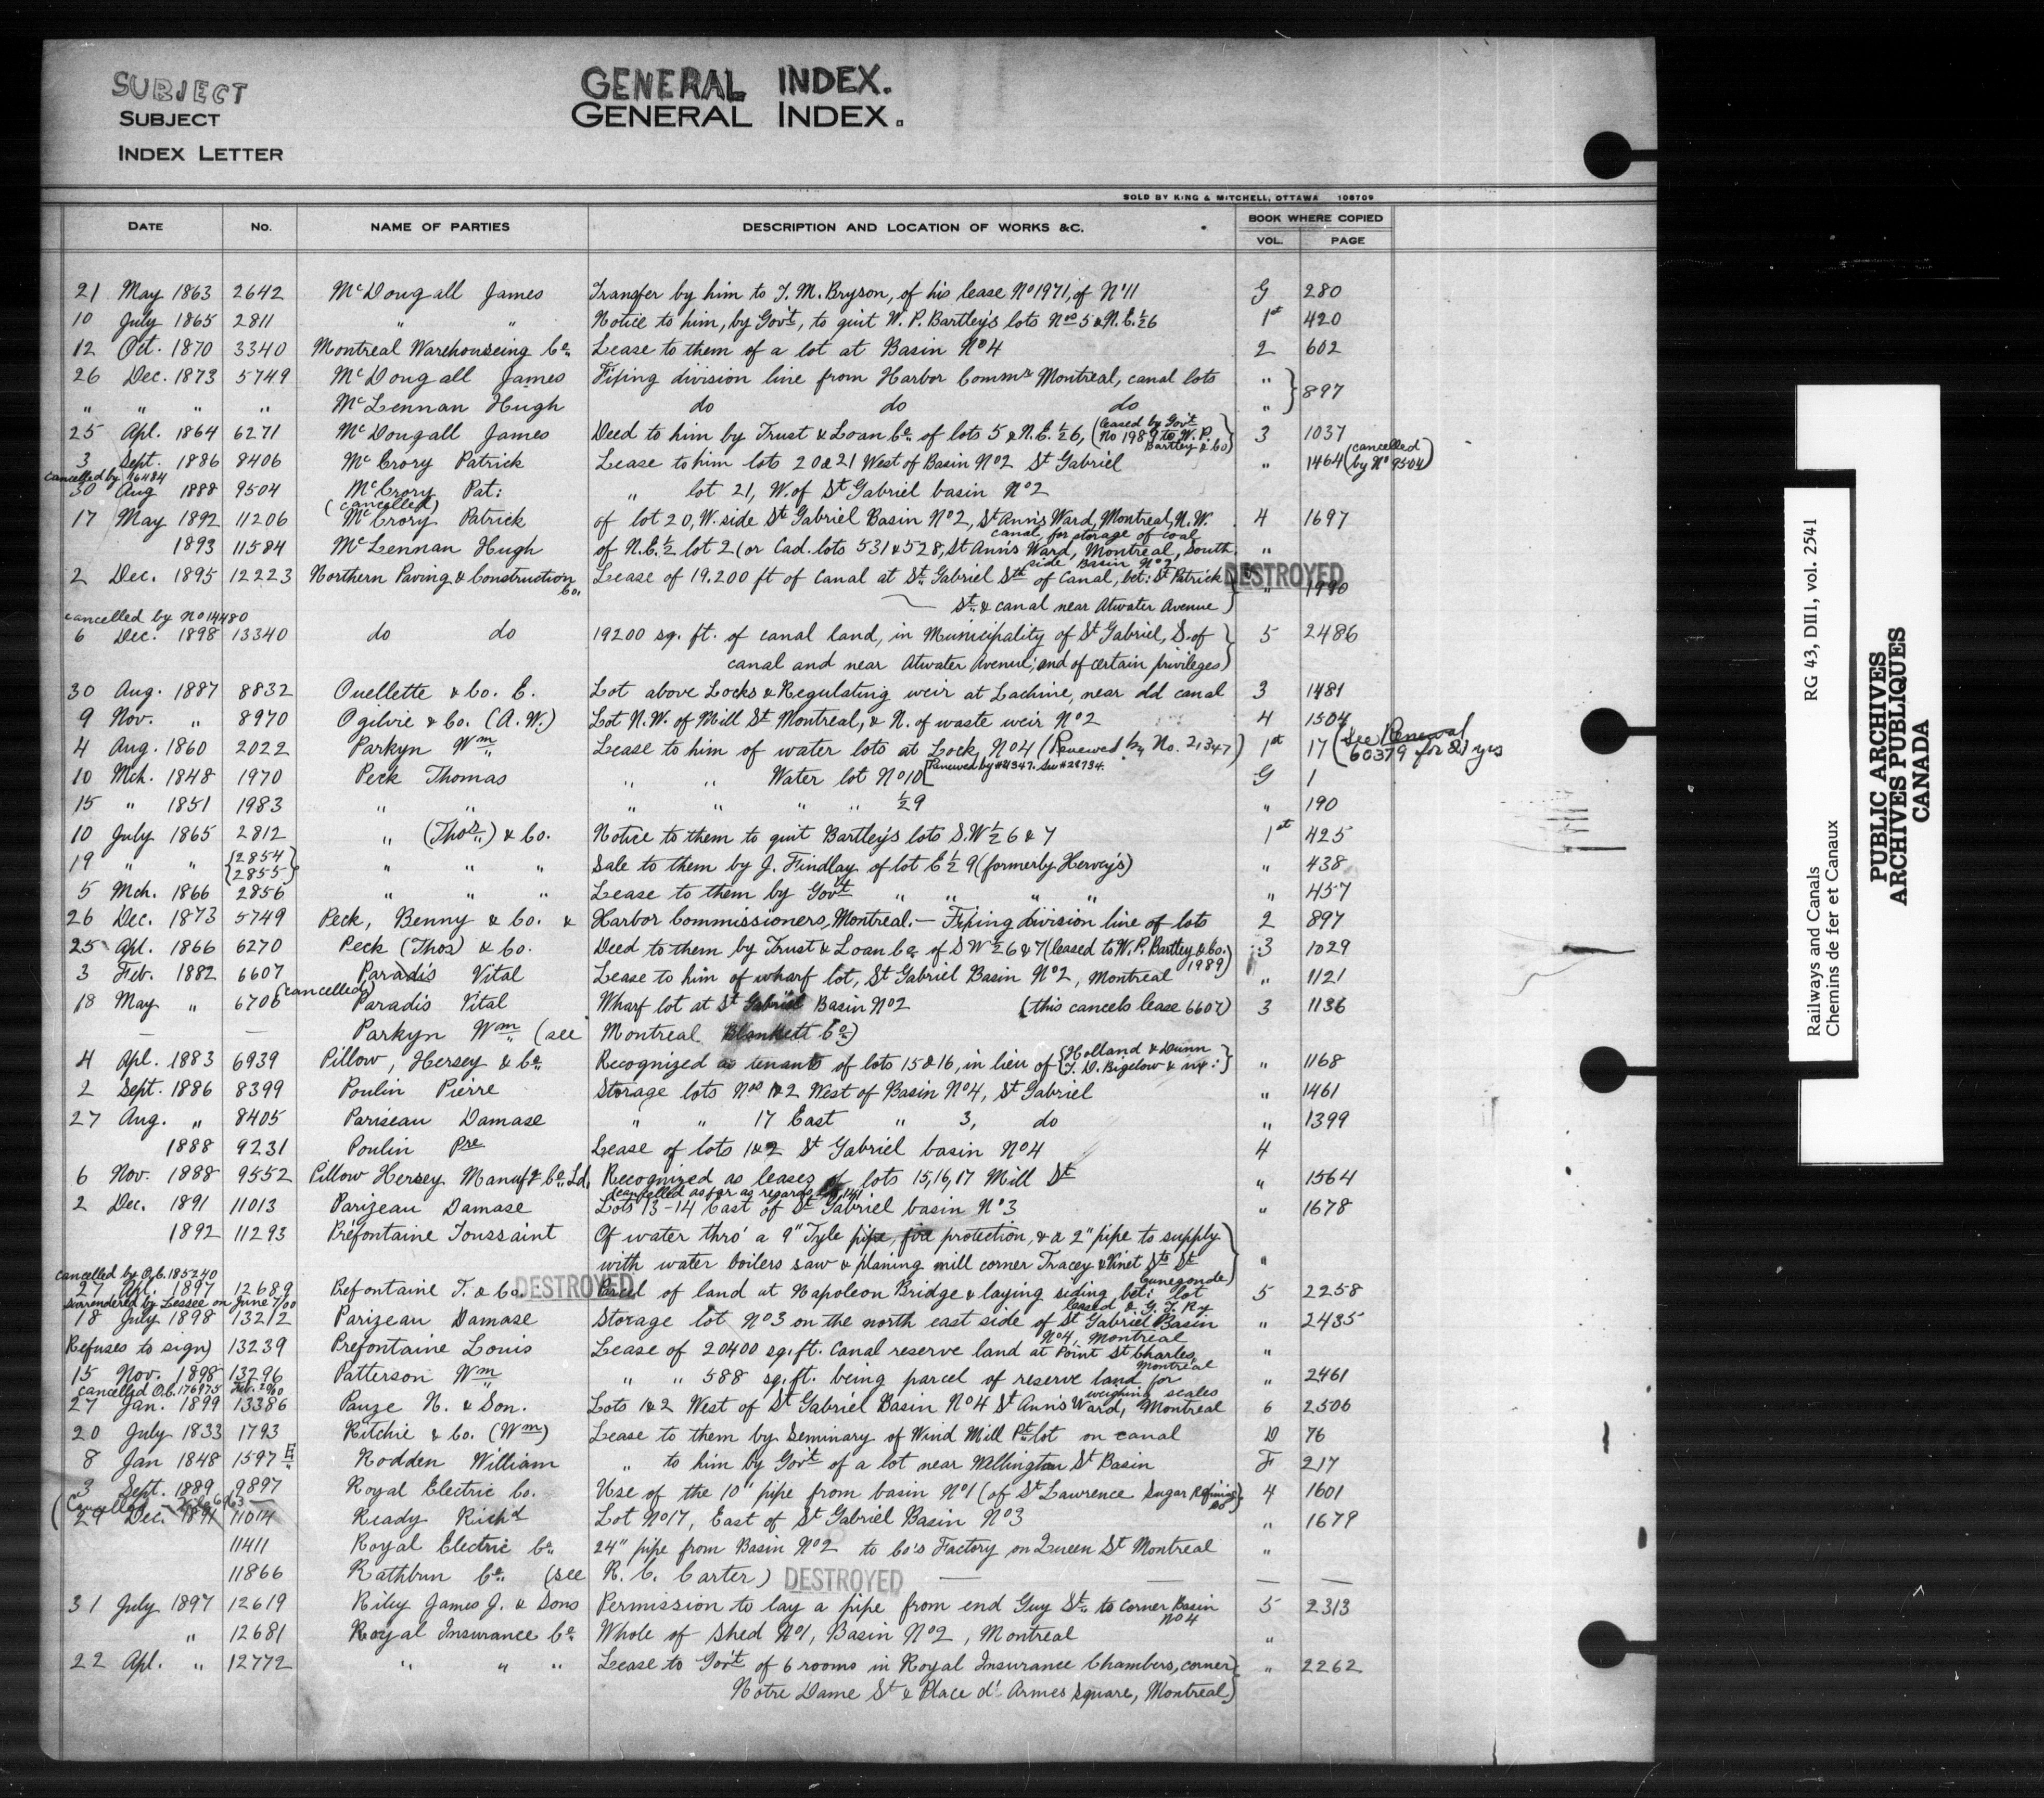 SUBJECT
GENERAL INDEX.
SUBJECT
GENERAL INDEX.
INDEX LETTER
SOLD BY KING & MITCHELL, OTTAWA 108709
DATE No. NAME OF PARTIES DESCRIPTION AND LOCATION OF WORKS &C. BOOK WHERE COPIED
VOL. PAGE
21 May 1863 2642 McDougall James Transfer by him to T. M. Bryson, of his lease No 1971, of No 11 G 280
10 July 1865 2811 " " Notice to him, by Gov't, to quit W. P. Bartley's lots Nos 5 & N.E. ½ 6 1st 420
12 Oct. 1870 3340 Montreal Warehouseing Co. Lease to them of a lot at Basin No 4 2 602
26 Dec. 1873 5749 McDougall James Fixing division line from Harbor Comms Montreal, canal lots " } 897
" " " " McLennan Hugh do do do "
25 Apl. 1864 6271 McDougall James Deed to him by Trust & Loan Co. of lots 5 & N.E. ½ 6, (leased by Gov't No 1989 to W. P. Bartley & Co) 3 1037
3 Sept. 1886 8406 McCrory Patrick Lease to him lots 20 & 21 West of Basin No 2 St Gabriel " 1464 (cancelled by No 9504)
cancelled by 16484
30 Aug 1888 9504 McCrory Pat: " lot 21, W. of St Gabriel basin No 2
(cancelled)
17 May 1892 11206 McCrory Patrick of lot 20, W. side St Gabriel Basin No 2, St Ann's Ward, Montreal, N.W. 4 1697
canal, for storage of coal
1893 11584 McLennan Hugh of N.E. ½ lot 2 (or Cad. lots 531 & 528, St Ann's Ward, Montreal, South "
side Basin No 2
2 Dec. 1895 12223 Northern Paving & Construction Co. Lease of 19.200 ft of Canal at St. Gabriel Sth of Canal, bet: St Patrick DESTROYED " 1990
St. & canal near Atwater Avenue)
cancelled by No 14480
6 Dec. 1898 13340 do do 19200 sq. ft. of canal land, in Municipality of St Gabriel, S. of 5 2486
canal and near Atwater Avenue; and of certain privileges)
30 Aug. 1887 8832 Ouellette & Co. E. Lot above Locks & Regulating weir at Lachine, near old canal 3 1481
9 Nov. " 8970 Ogilvie & Co. (A. W.) Lot N.W. of Mill St Montreal, & N. of waste weir No 2 4 1504
4 Aug. 1860 2022 Parkyn Wm Lease to him of water lots at Lock, No 4 (Renewed by No. 21347) 1st 17 (See Renewal 60379 for 21 yrs
10 Mch. 1848 1970 Peck Thomas " " Water lot No 10 [Renewed by #21347. See #28734. G 1
15 " 1851 1983 " " " " " " ½ 9 " 190
10 July 1865 2812 " (Thos) & Co. Notice to them to quit Bartley's lots S.W ½ 6 & 7 1st 425
19 " " {2854 2855} " " " Sale to them by J. Findlay of lot E ½ 9 (formerly Hervey's) " 438
5 Mch. 1866 2856 " " " Lease to them by Gov't " " " " " 457
26 Dec. 1873 5749 Peck, Benny & Co. & Harbor Commissioners, Montreal. — Fixing division line of lots 2 897
25 Apl. 1866 6270 Peck (Thos) & Co. Deed to them by Trust & Loan Co. of S W ½ 6 & 7 (leased to W. P. Bartley & Co. 1989) 3 1029
3 Feb. 1882 6607 Paradis Vital Lease to him of wharf lot, St Gabriel Basin No 2, Montreal " 1121
(cancelled)
18 May " 6706 Paradis Vital Wharf lot at St Gabriel Basin No 2 (this cancels lease 6607) 3 1136
— — Parkyn Wm (see Montreal Blankett Co.)
4 Apl. 1883 6939 Pillow, Hersey & Co. Recognized as tenants of lots 15 & 16, in lieu of {Holland & Dunn T. D. Bigelow & } " 1168
2 Sept. 1886 8399 Poulin Pierre Storage lots Nos 1 & 2 West of Basin No 4, St Gabriel " 1461
27 Aug. " 8405 Pariseau Damase " " 17 East " 3, do " 1399
1888 9231 Poulin Pre Lease of lots 1 & 2 St Gabriel basin No 4 4
6 Nov. 1888 9552 Pillow Hersey Manuf'g Co. Ld. Recognized as leases of lots 15, 16, 17 Mill St " 1564
cancelled as far as regards lot 14
2 Dec. 1891 11013 Parizeau Damase Lots 13-14 East of St Gabriel basin No 3 " 1678
1892 11293 Préfontaine Toussaint Of water thro' a 9" Tyle pipe, fire protection, & a 2" pipe to supply
with water boilers saw & planing mill corner Tracey & Vinet Sts St Cunegonde) "
cancelled by O.C. 185240
27 Apl. 1897 12689 Prefontaine T. & Co. DESTROYED Parcel of land at Napoleon Bridge & laying siding bet: lot 5 2258
leased & G. T. Ry
Surrendered by Lessee on June 7/00
18 July 1898 13212 Parizeau Damase Storage lot No 3 on the north east side of St Gabriel Basin " 2435
No 4, Montreal
Refuses to sign) 13239 Prefontaine Louis Lease of 20400 sq. ft. Canal reserve land at Point St Charles, "
Montreal
15 Nov. 1898 13296 Patterson Wm " " 588 sq. ft. being parcel of reserve land for " 2461
weighing scales
cancelled O.C. 176975
27 Jan. 1899 13386 Pauze N. & Son. Lots 1 & 2 West of St Gabriel Basin No 4 St Ann's Ward, Montreal 6 2506
20 July 1833 1793 Ritchie & Co. (Wm) Lease to them by Seminary of Wind Mill Pt. lot on canal D 76
8 Jan 1848 1597 E Rodden William " to him by Gov't of a lot near Wellington St Basin F 217
3 Sept. 1889 9897 Royal Electric Co. Use of the 10" pipe from basin No 1 (of St Lawrence Sugar Refining Co) 4 1601
(Cancelled
29 Dec. 1891 11014 Ready Rich'd Lot No 17, East of St Gabriel Basin No 3 " 1679
11411 Royal Electric Co. 24" pipe from Basin No 2 to Co's Factory on Queen St Montreal "
11866 Rathbun Co. (see R. C. Carter) DESTROYED — — — —
31 July 1897 12619 Riley James J. & Sons Permission to lay a pipe from end Guy St. to corner Basin No 4 5 2313
" 12681 Royal Insurance Co. Whole of Shed No 1, Basin No 2, Montreal "
22 Apl. " 12772 " " " Lease to Gov't of 6 rooms in Royal Insurance Chambers, corner " 2262
Notre Dame St & Place d'Armes Square, Montreal)
Railways and Canals RG 43, DIII, vol. 2541
Chemins de fer et Canaux
PUBLIC ARCHIVES
ARCHIVES PUBLIQUES
CANADA